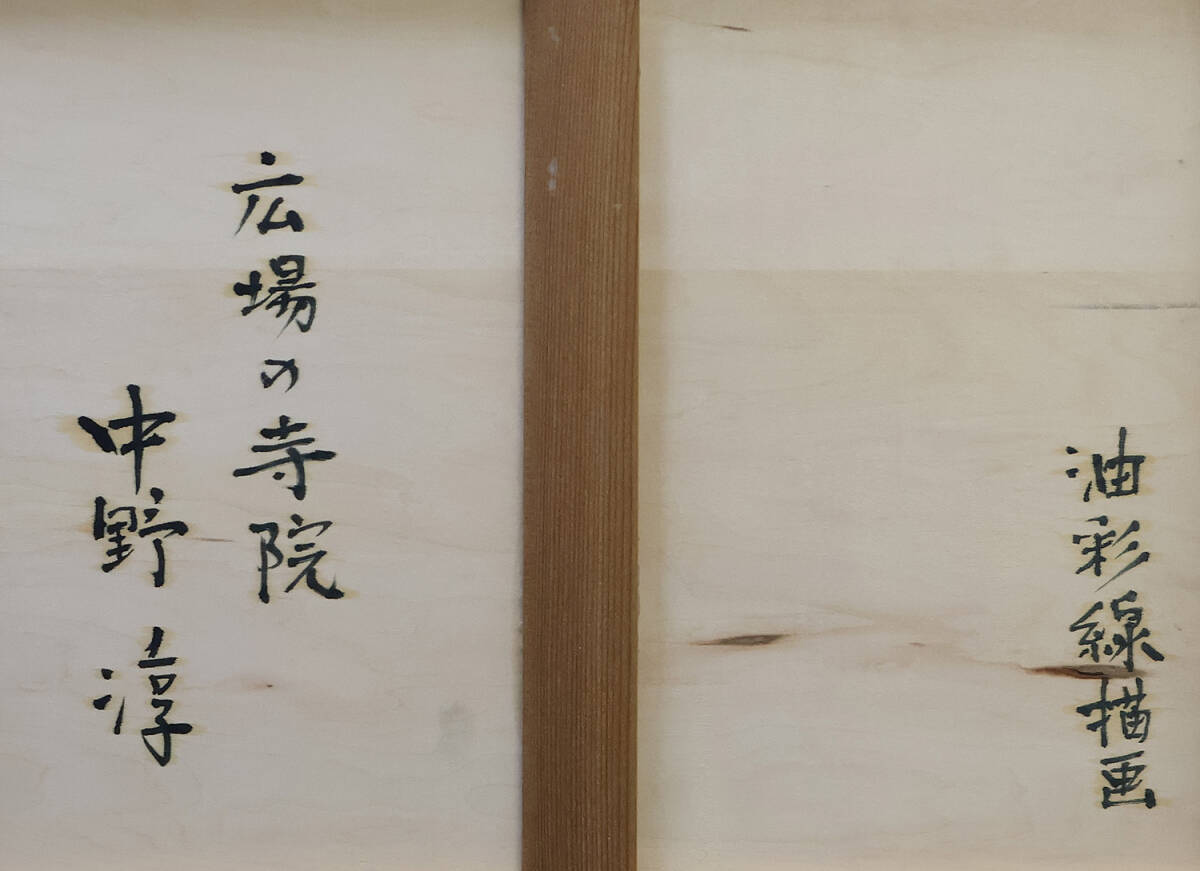 油彩線描画
広場の寺院
中野淳